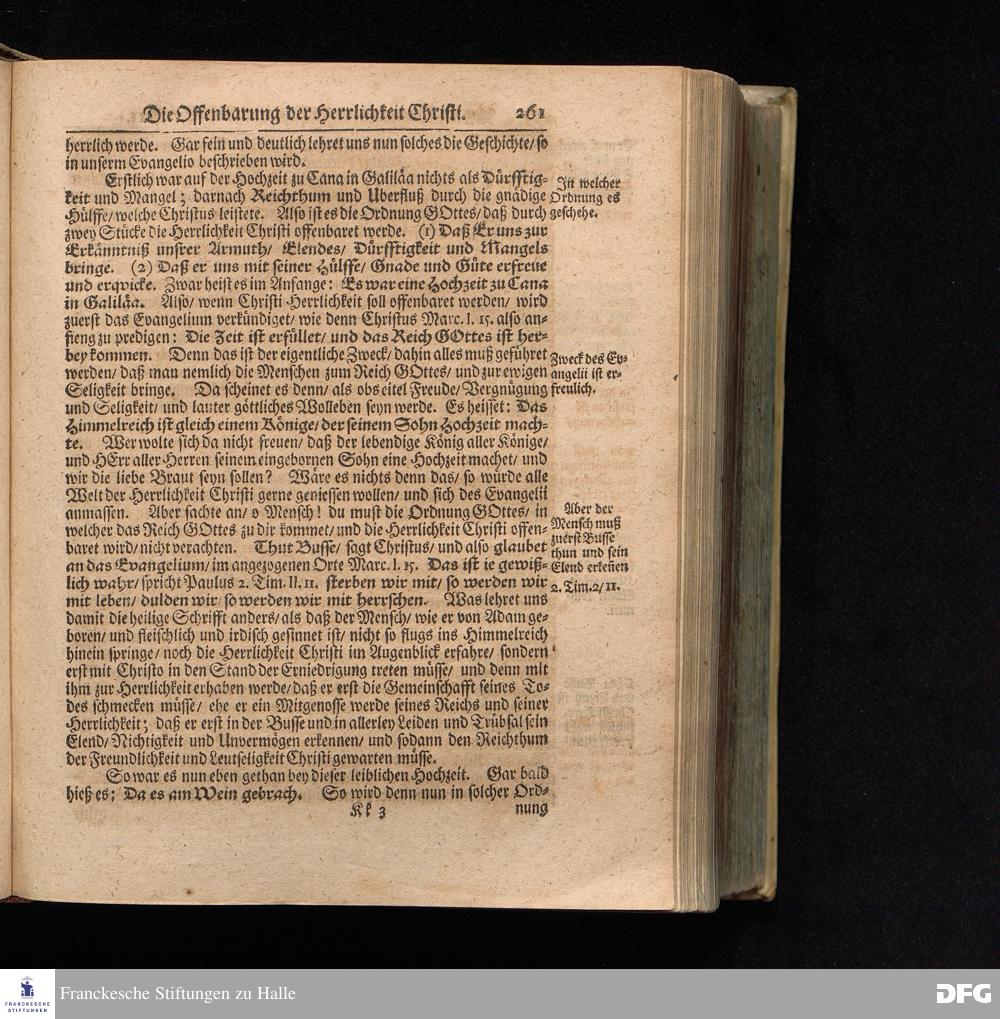 Die Offenbarung der Herrlichkeit Christi. 261
herrlich werde. Gar fein und deutlich lehret uns nun solches die Geschichte/ so
in unserm Evangelio beschrieben wird.
Erstlich war auf der Hochzeit zu Cana in Galiläa nichts als Dürfftig-
keit und Mangel; darnach Reichthum und Uberfluß durch die gnädige
Hülffe/ welche Christus leistete. Also ist es die Ordnung GOttes/ daß durch
zwey Stücke die Herrlichkeit Christi offenbaret werde. (1) Daß Er uns zur
Erkänntniß unsrer Armuth/ Elendes/ Dürfftigkeit und Mangels
bringe. (2) Daß er uns mit seiner Hülffe/ Gnade und Güte erfreue
und erqvicke. Zwar heist es im Anfange: Es war eine Hochzeit zu Cana
in Galiläa. Also/ wenn Christi Herrlichkeit soll offenbaret werden/ wird
zuerst das Evangelium verkündiget/ wie denn Christus Marc. I. 15. also an-
fieng zu predigen: Die Zeit ist erfüllet/ und das Reich GOttes ist her-
bey kommen. Denn das ist der eigentliche Zweck/ dahin alles muß geführet
werden/ daß man nemlich die Menschen zum Reich GOttes/ und zur ewigen
Seligkeit bringe. Da scheinet es denn/ als obs eitel Freude/ Vergnügung
und Seligkeit/ und lauter göttliches Wolleben seyn werde. Es heisset: Das
Himmelreich ist gleich einem Könige/ der seinem Sohn Hochzeit mach-
te. Wer wolte sich da nicht freuen/ daß der lebendige König aller Könige/
und HErr aller Herren seinem eingebornen Sohn eine Hochzeit machet/ und
wir die liebe Braut seyn sollen? Wäre es nichts denn das/ so würde alle
Welt der Herrlichkeit Christi gerne geniessen wollen/ und sich des Evangelii
anmassen. Aber sachte an/ o Mensch! du must die Ordnung GOttes/ in
welcher das Reich GOttes zu dir kommet/ und die Herrlichkeit Christi offen-
baret wird/ nicht verachten. Thut Busse/ sagt Christus/ und also glaubet
an das Evangelium/ im angezogenen Orte Marc. I. 15. Das ist ie gewiß-
lich wahr/ spricht Paulus 2. Tim. II. 11. sterben wir mit/ so werden wir
mit leben/ dulden wir/ so werden wir mit herrschen. Was lehret uns
damit die heilige Schrifft anders/ als daß der Mensch/ wie er von Adam ge-
boren/ und fleischlich und irdisch gesinnet ist/ nicht so flugs ins Himmelreich
hinein springe/ noch die Herrlichkeit Christi im Augenblick erfahre/ sondern
erst mit Christo in den Stand der Erniedrigung treten müsse/ und denn mit
ihm zur Herrlichkeit erhaben werde/ daß er erst die Gemeinschafft seines To-
des schmecken müsse/ ehe er ein Mitgenosse werde seines Reichs und seiner
Herrlichkeit; daß er erst in der Busse und in allerley Leiden und Trübsal sein
Elend/ Nichtigkeit und Unvermögen erkennen/ und sodann den Reichthum
der Freundlichkeit und Leutseligkeit Christi gewarten müsse.
So war es nun eben gethan bey dieser leiblichen Hochzeit. Gar bald
hieß es; Da es am Wein gebrach. So wird denn nun in solcher Ord-
Kk 3 nung
In welcher
Ordnung es
geschehe.
Zweck des Ev-
angelii ist er-
freulich.
Aber der
Mensch muß
zuerst Busse
thun und sein
Elend erkeñen
2. Tim. 2/ 11.
FRANCKESCHE
STIFTUNGEN
Franckesche Stiftungen zu Halle
DFG